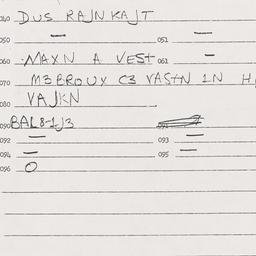 040 DUS RAJNKAJT
050 — 051
060 MAXN A VEST 061 —
070 M3BROUX C3 VASTN IN H
080 VAJKN
090 BAL8-1J3
092 — 093 —
094 — 095 —
096 O